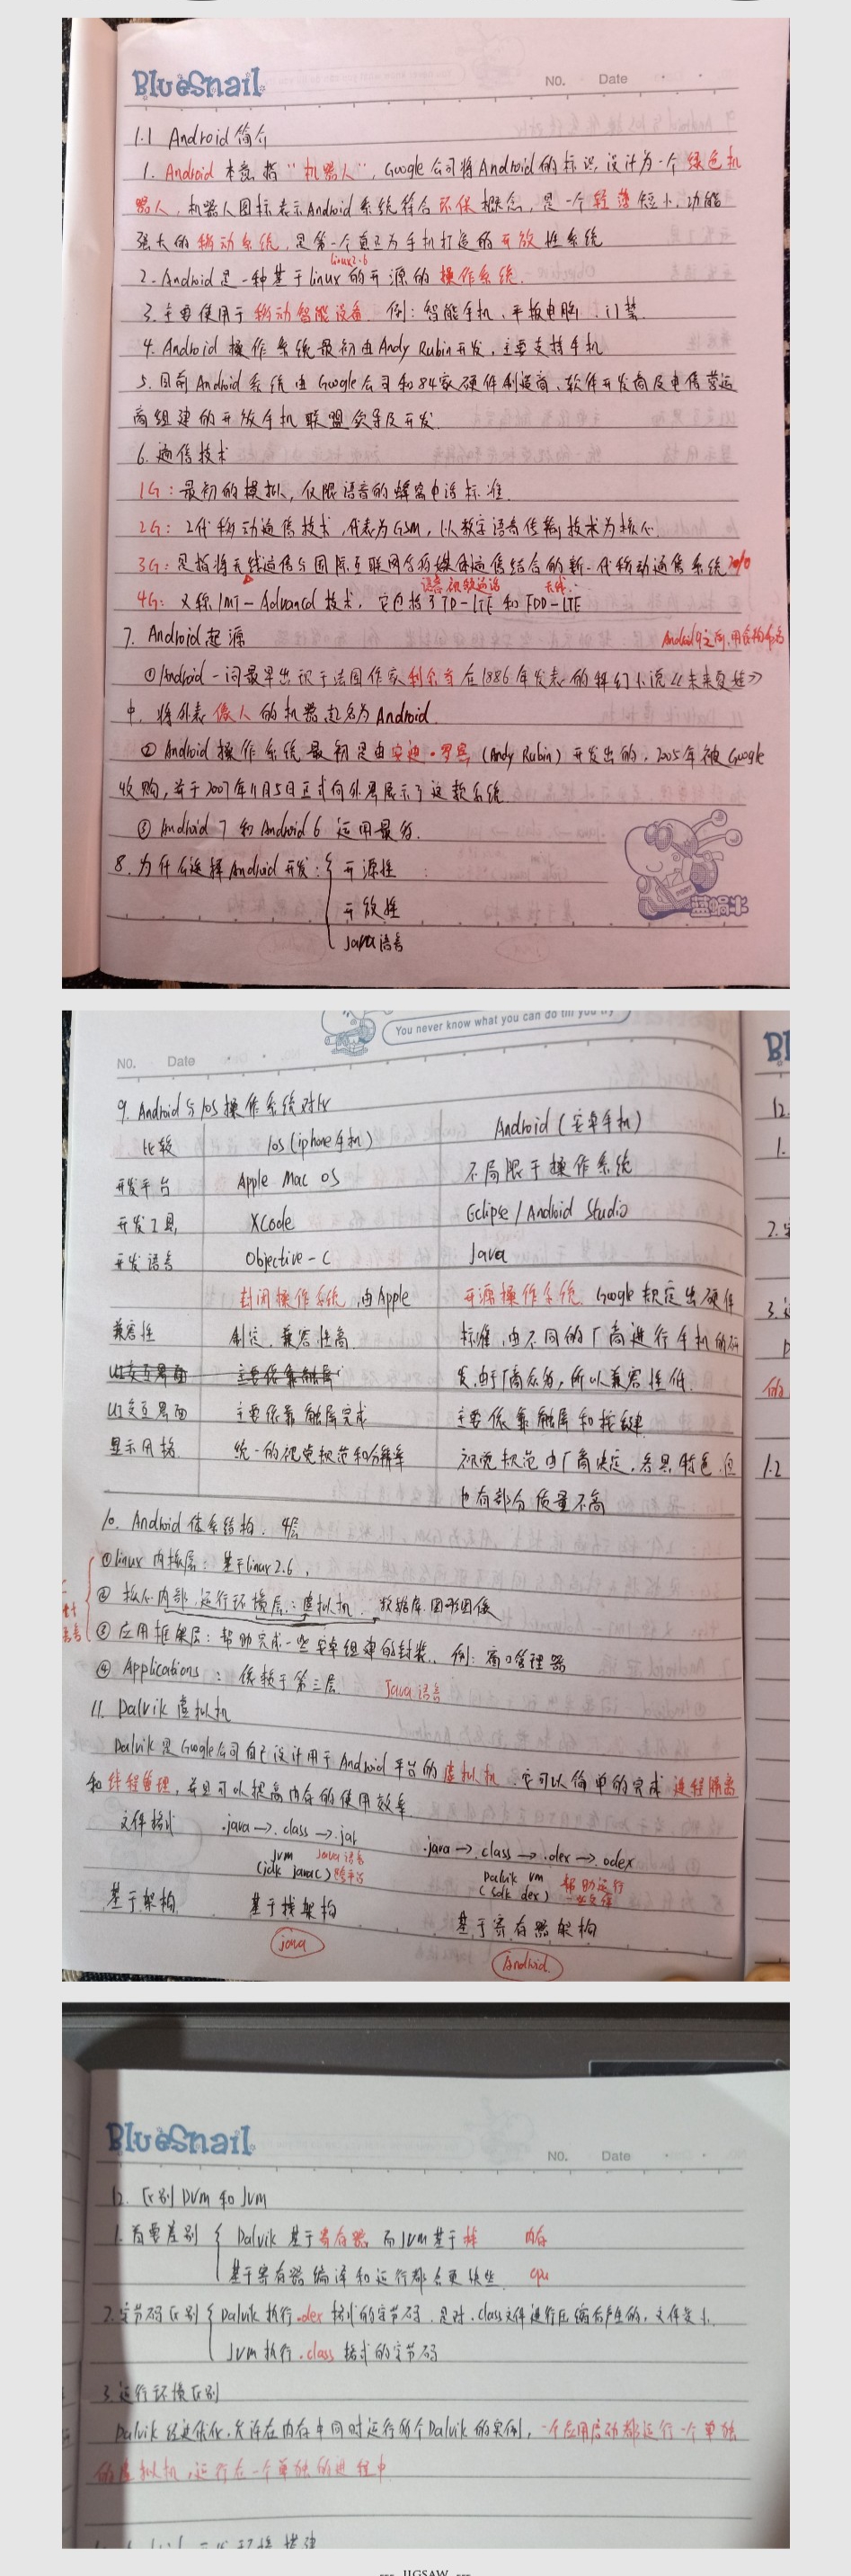 BlueSnail
NO. Date
1.1 Android简介
1. Android本意指“机器人”, Google公司将Android的标识设计为一个绿色机
器人, 机器人图标表示Android系统符合环保概念, 是一个轻薄短小、功能
强大的移动系统, 是第一个真正为手机打造的开放性系统
linux2.6
2. Android是一种基于linux的开源的操作系统.
3. 主要使用于移动智能设备 例: 智能手机、平板电脑、门禁
4. Android操作系统最初由Andy Rubin开发, 主要支持手机
5. 目前Android系统由Google公司和84家硬件制造商、软件开发商及电信营运
商组建的开放手机联盟领导及开发
6. 通信技术
1G: 最初的模拟, 仅限语音的蜂窝电话标准.
2G: 2代移动通信技术, 代表为GSM, 以数字语音传输技术为核心
3G: 是指将无线通信与国际互联网等多媒体通信结合的新一代移动通信系统
4G: 又称IMT-Advanced技术, 它包括了TD-LTE和FDD-LTE
7. Android起源
Android 9之前, 用食物命名
①Android一词最早出现于法国作家利尔亚当在1886年发表的科幻小说《未来夏娃》
中. 将外表像人的机器起名为Android.
② Android操作系统最初是由安迪·罗宾 (Andy Rubin) 开发出的, 2005年被Google
收购, 并于2007年11月5日正式向外界展示了这款系统
③ Android 7 和Android 6 运用最多.
8. 为什么选择Android开发: { 开源性
开放性
java语言
蓝蜗牛
You never know what you can do till you try
NO. Date
9. Android与Ios操作系统对比
比较 Ios (iphone手机) Android (安卓手机)
开发平台 Apple Mac OS 不局限于操作系统
开发工具 XCode Eclipse / Android Studio
开发语言 Objective-C Java
封闭操作系统, 由Apple 开源操作系统. Google规定出硬件
兼容性 制定, 兼容性高 标准, 由不同的厂商进行手机的研
发, 由于厂商众多, 所以兼容性低.
UI交互界面 主要依靠触屏完成 主要依靠触屏和按键
显示风格 统一的视觉规范和分辨率 视觉规范由厂商决定, 各具特色, 但
也有部分质量不高
10. Android体系结构. 4层
①linux内核层: 基于linux2.6,
② 核心内部, 运行环境层: 虚拟机, 数据库. 图形图像
③ 应用框架层: 帮助完成一些安卓组建的封装. 例: 窗口管理器
④ Applications: 依赖于第三层. Java语言
11. Dalvik虚拟机
Dalvik是Google公司自己设计用于Android平台的虚拟机. 它可以简单的完成进程隔离
和线程管理, 并且可以提高内存的使用效率
文件格式 .java→.class→.jar .java→.class→.dex→.odex
Jvm Java语言 Dalvik vm 帮助运行
(jdk javac) 跨平台 (sdk dex) 一些文件
基于架构 基于栈架构 基于寄存器架构
java Android
BlueSnail
NO. Date
12. 区别DVM和JVM
1. 首要差别 { Dalvik基于寄存器 而JVM基于栈 内存
基于寄存器编译和运行都会更快些 cpu
2. 字节码区别 { Dalvik执行.dex格式的字节码, 是对.class文件进行压缩后产生的, 文件变小.
JVM执行.class格式的字节码
3. 运行环境区别
Dalvik经过优化, 允许在内存中同时运行多个Dalvik的实例, 一个应用启动都运行一个单独
的虚拟机, 运行在一个单独的进程中
--- JIGSAW ---